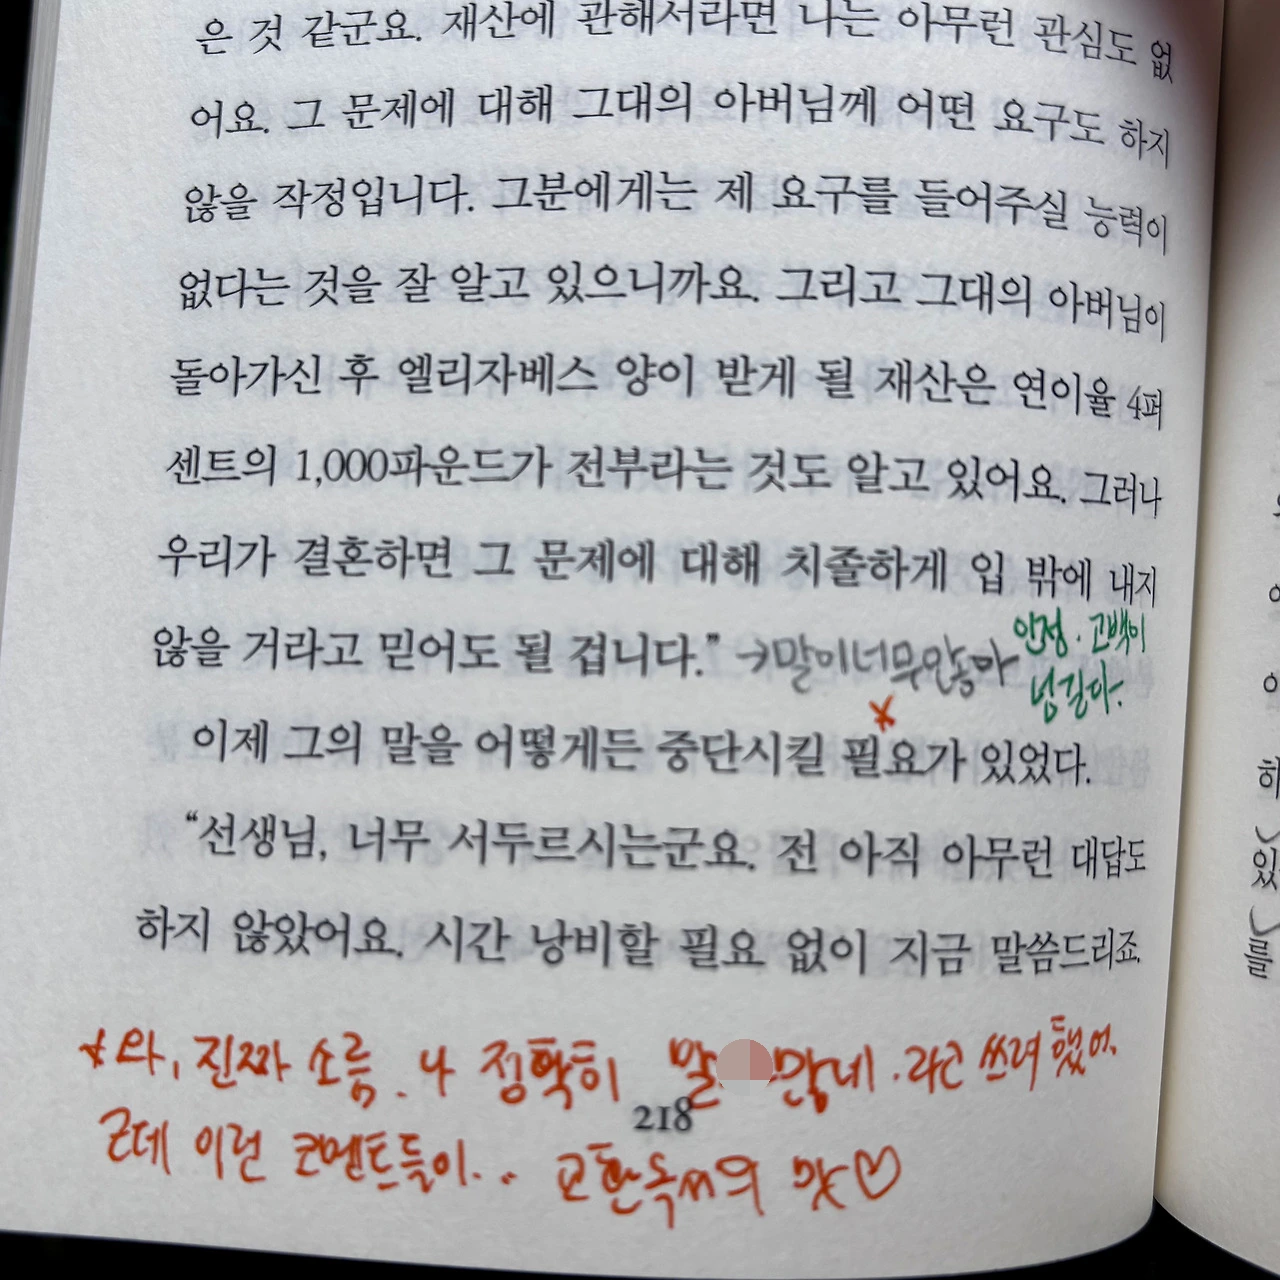 은 것 같군요. 재산에 관해서라면 나는 아무런 관심도 없
어요. 그 문제에 대해 그대의 아버님께 어떤 요구도 하지
않을 작정입니다. 그분에게는 제 요구를 들어주실 능력이
없다는 것을 잘 알고 있으니까요. 그리고 그대의 아버님이
돌아가신 후 엘리자베스 양이 받게 될 재산은 연이율 4퍼
센트의 1,000파운드가 전부라는 것도 알고 있어요. 그러나
우리가 결혼하면 그 문제에 대해 치졸하게 입 밖에 내지
않을 거라고 믿어도 될 겁니다.” →말이너무많놈아
인정. 고백이
넘길다.
이제 그의 말을 어떻게든 중단시킬 필요가 있었다.
“선생님, 너무 서두르시는군요. 전 아직 아무런 대답도
하지 않았어요. 시간 낭비할 필요 없이 지금 말씀드리죠.
*와, 진짜 소름. 나 정확히 말 많네. 라고 쓰려 했어.
218
근데 이런 코멘트들이.. 교환독서의 맛♡
있
를